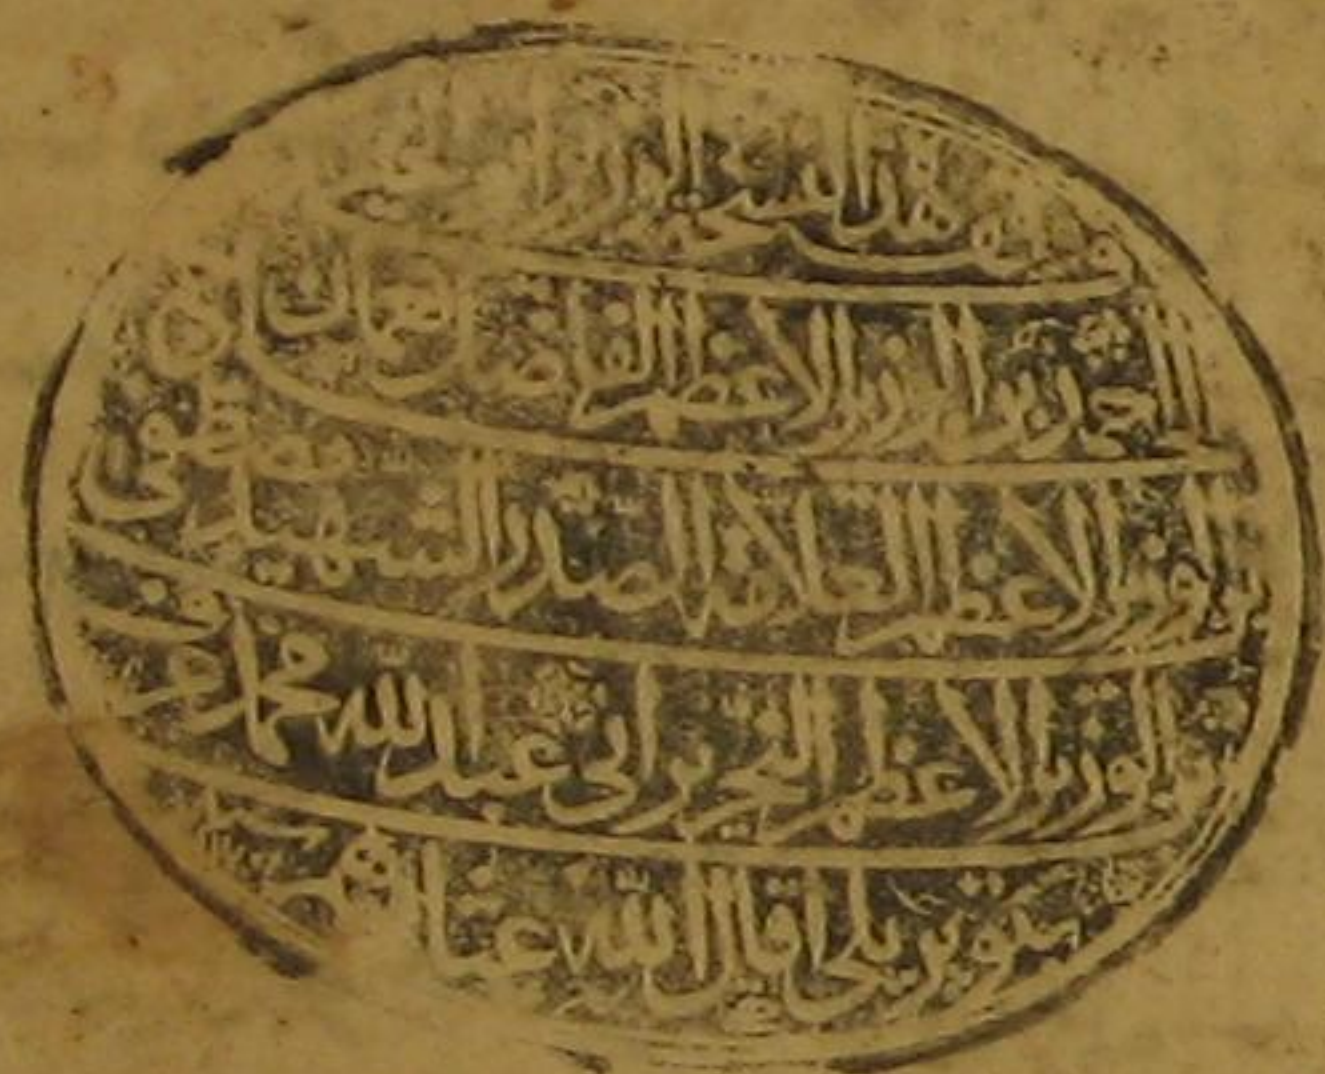 وقف هذه النسخة الوزير ابو
الحاج احمد بن الوزير الاعظم الفاضل نعمان
بن الوزير الاعظم العلامة الصدر الشهيد مصطفى
بن الوزير الاعظم النحرير ابي عبد الله محمد عرف
بكوپريلى اقال الله عثارهم